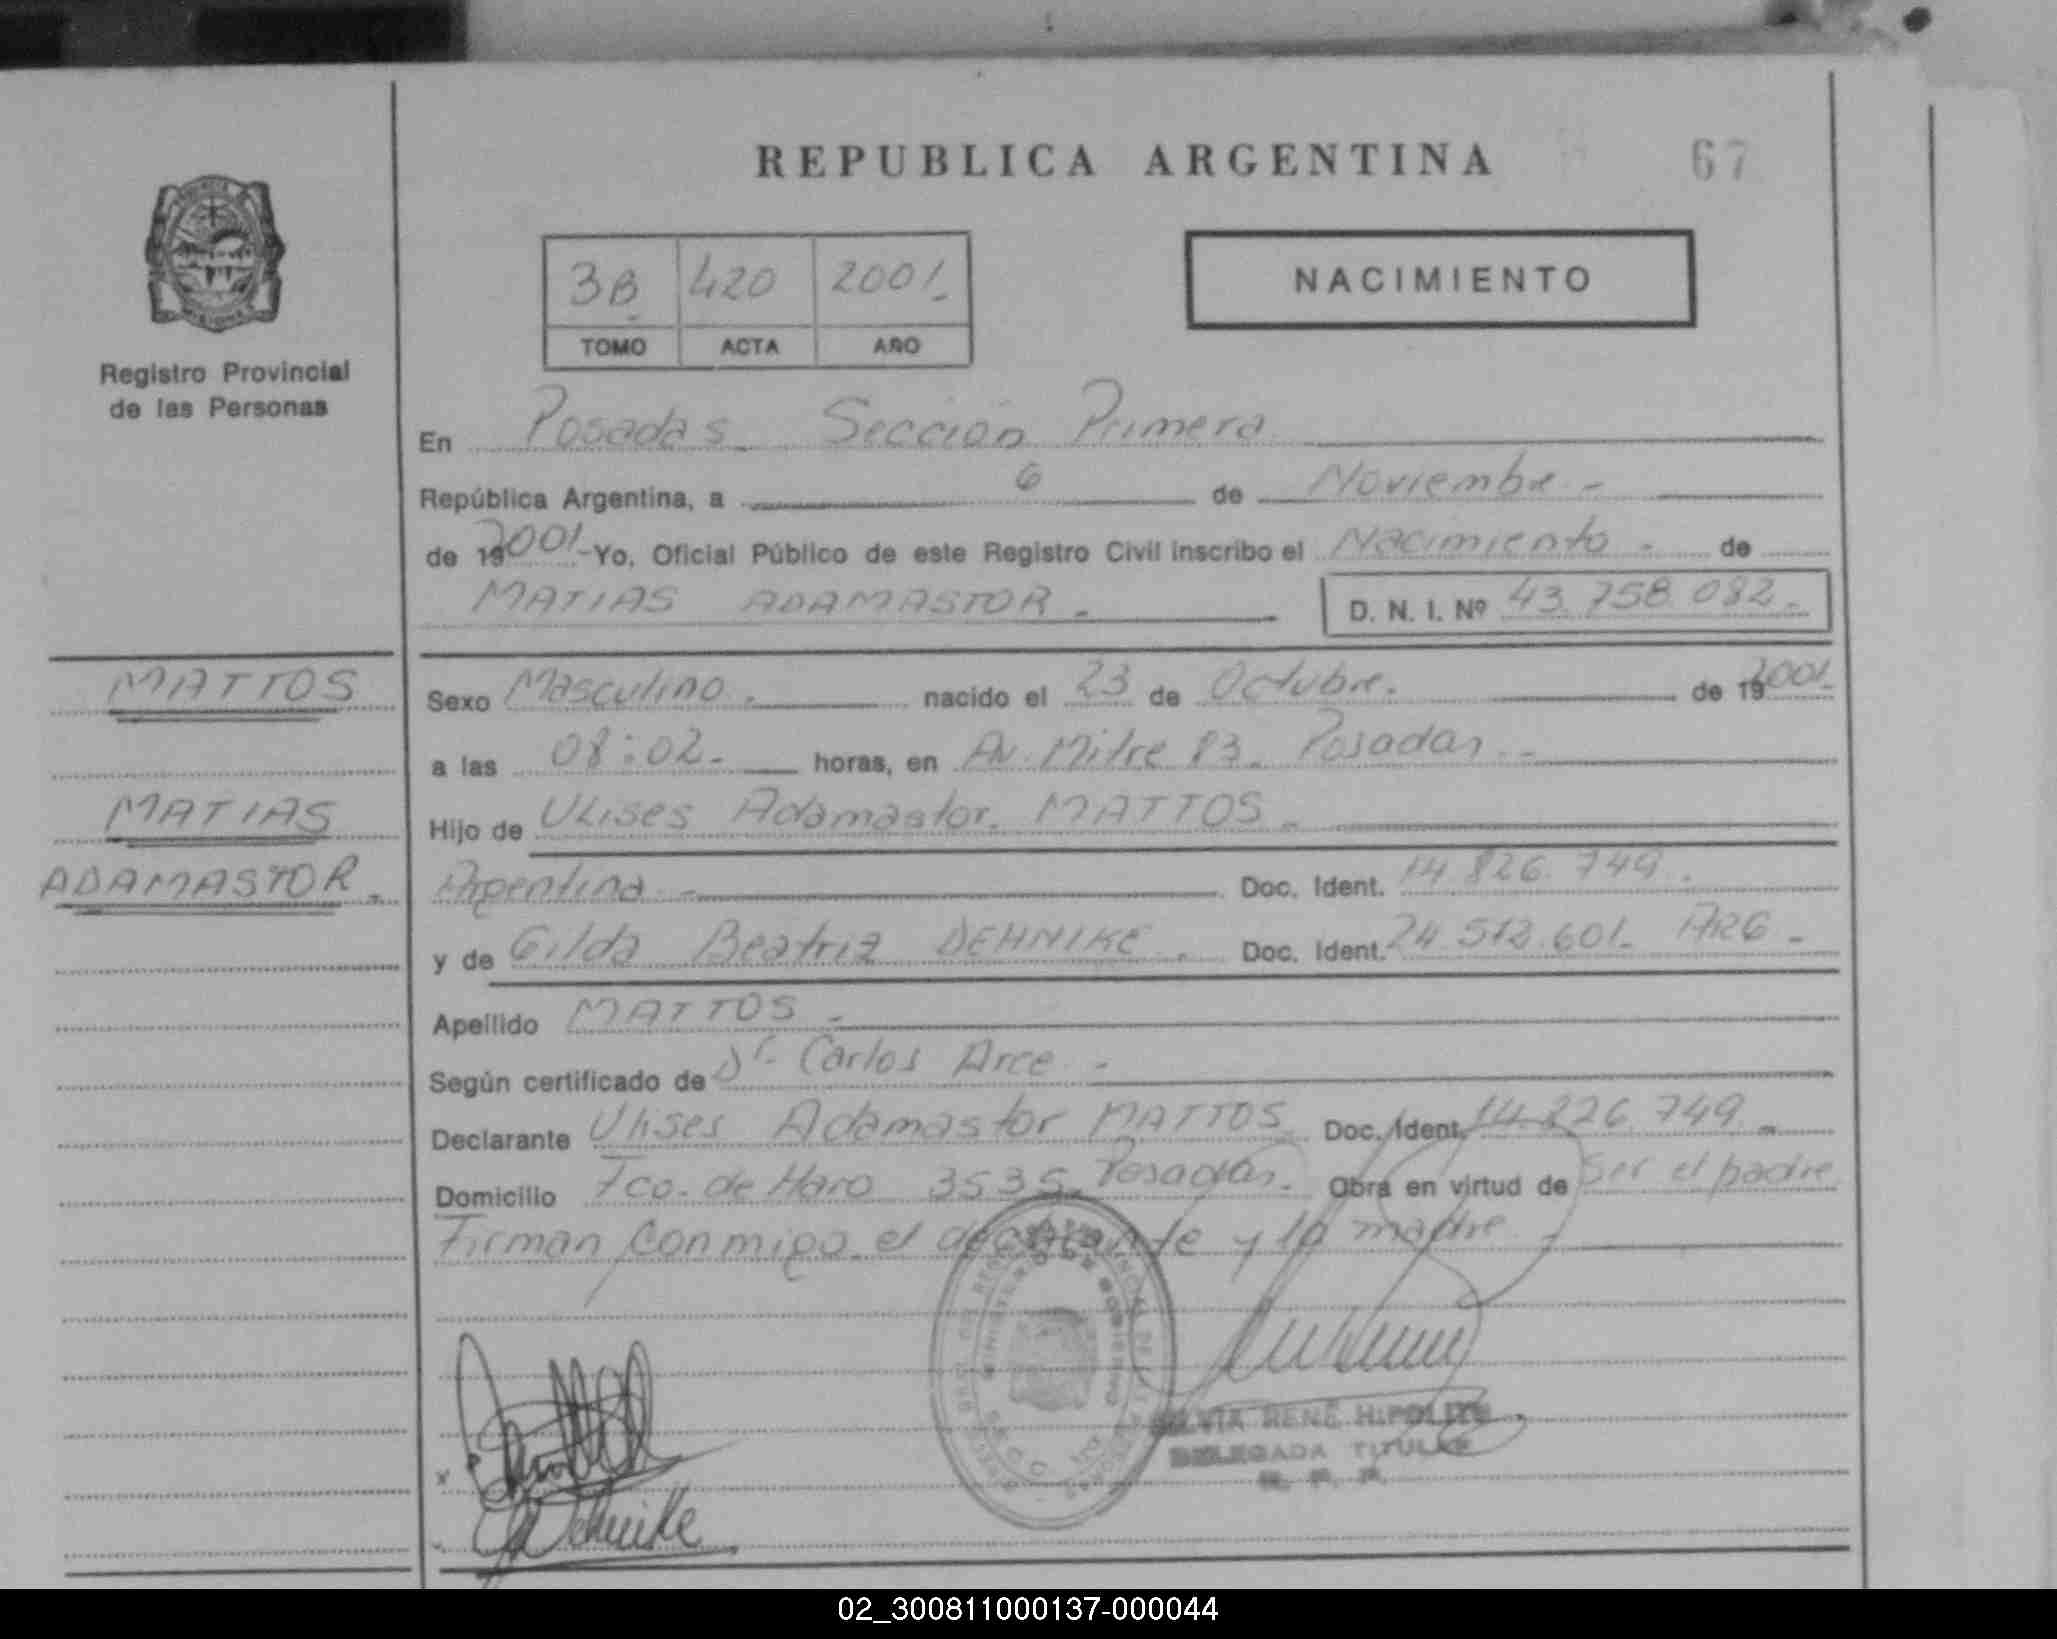 REPUBLICA ARGENTINA
67
Registro Provincial
de las Personas
3B 420 2001.-
TOMO ACTA AÑO
NACIMIENTO
En Posadas Sección Primera
República Argentina, a 6 de Noviembre.-
de 192001.- Yo, Oficial Público de este Registro Civil inscribo el Nacimiento.- de
MATIAS ADAMASTOR.-
D. N. I. Nº 43.758.082.-
MATTOS
MATIAS
ADAMASTOR.-
Sexo Masculino.- nacido el 23 de Octubre.- de 192001.-
a las 08:02.- horas, en Av. Mitre 83. Posadas.-
Hijo de Ulises Adamastor MATTOS.-
Argentina.- Doc. Ident. 14.826.749.
y de Gilda Beatriz DEHNIKE.- Doc. Ident. 24.512.601. ARG.-
Apellido MATTOS.-
Según certificado de Dr. Carlos Arce.-
Declarante Ulises Adamastor MATTOS Doc. Ident. 14.826.749.-
Domicilio Fco. de Haro 3535. Posadas. Obra en virtud de Ser el padre
Firman conmigo el declarante y la madre.-
SILVIA RENÉ HIPOLITO
DELEGADA TITULAR
Dehnike
02_300811000137-000044